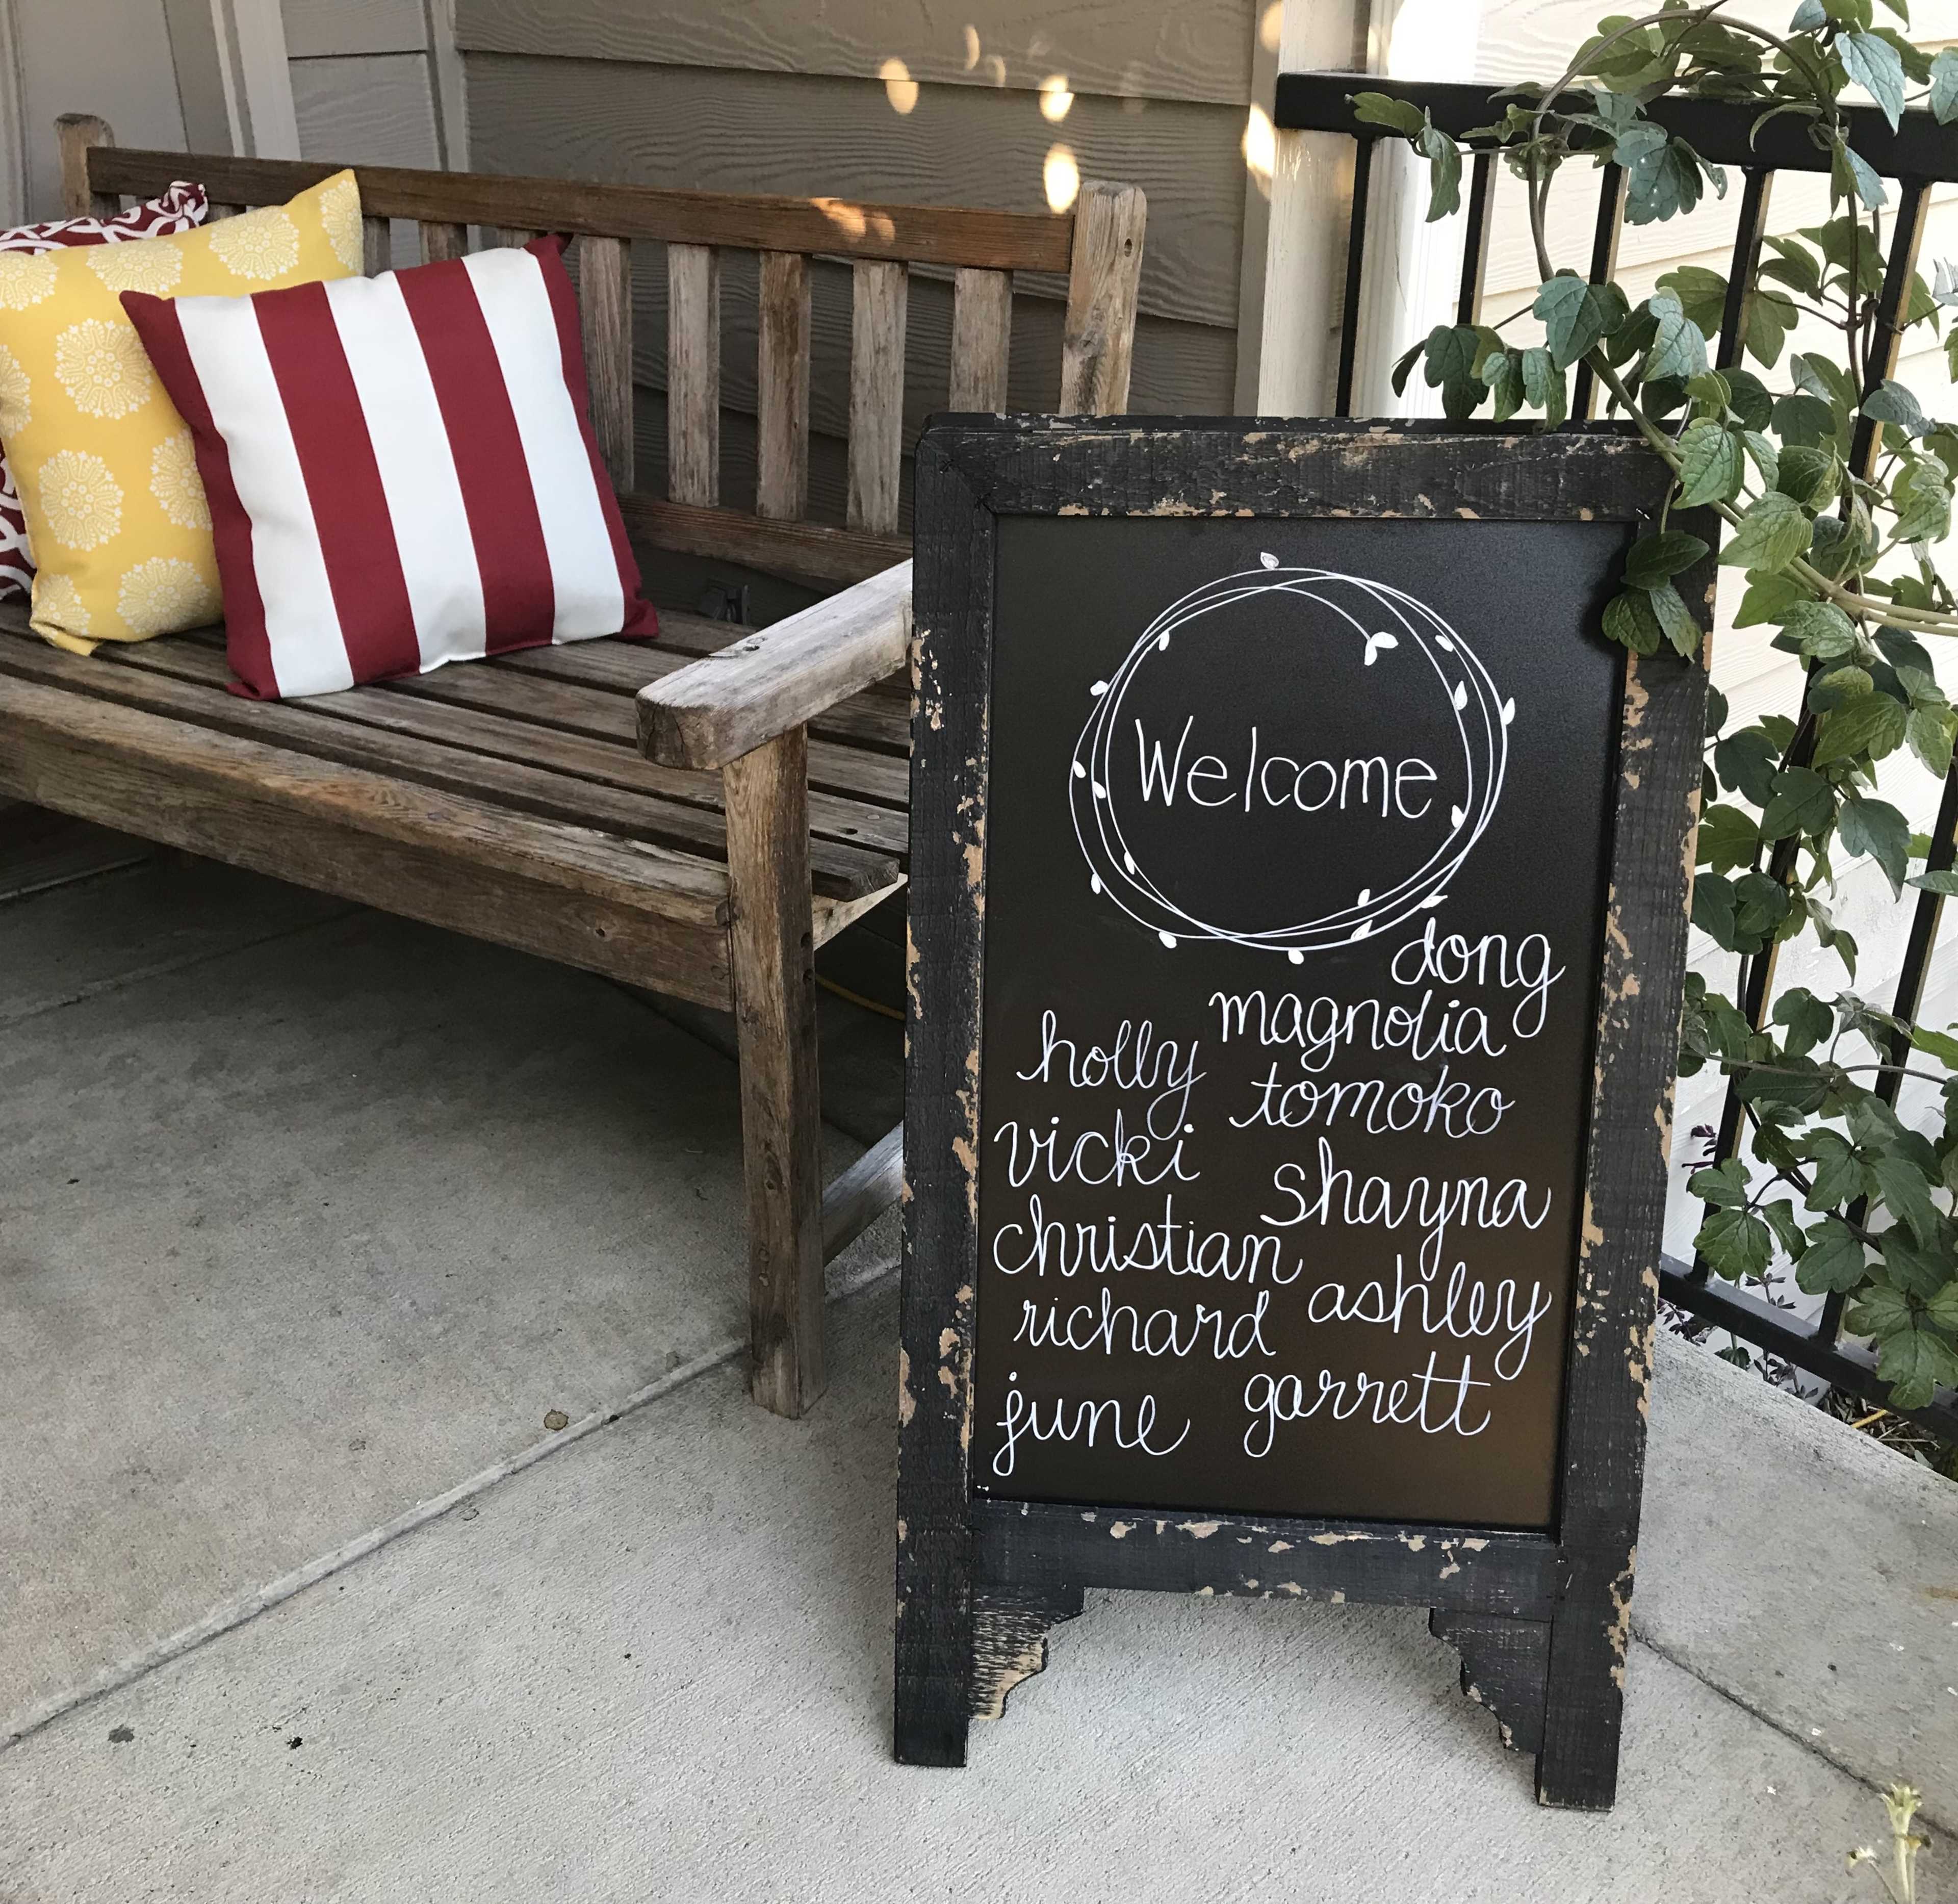 Welcome
dong
magnolia
holly
tomoko
vicki
shayna
christian
ashley
richard
garrett
june